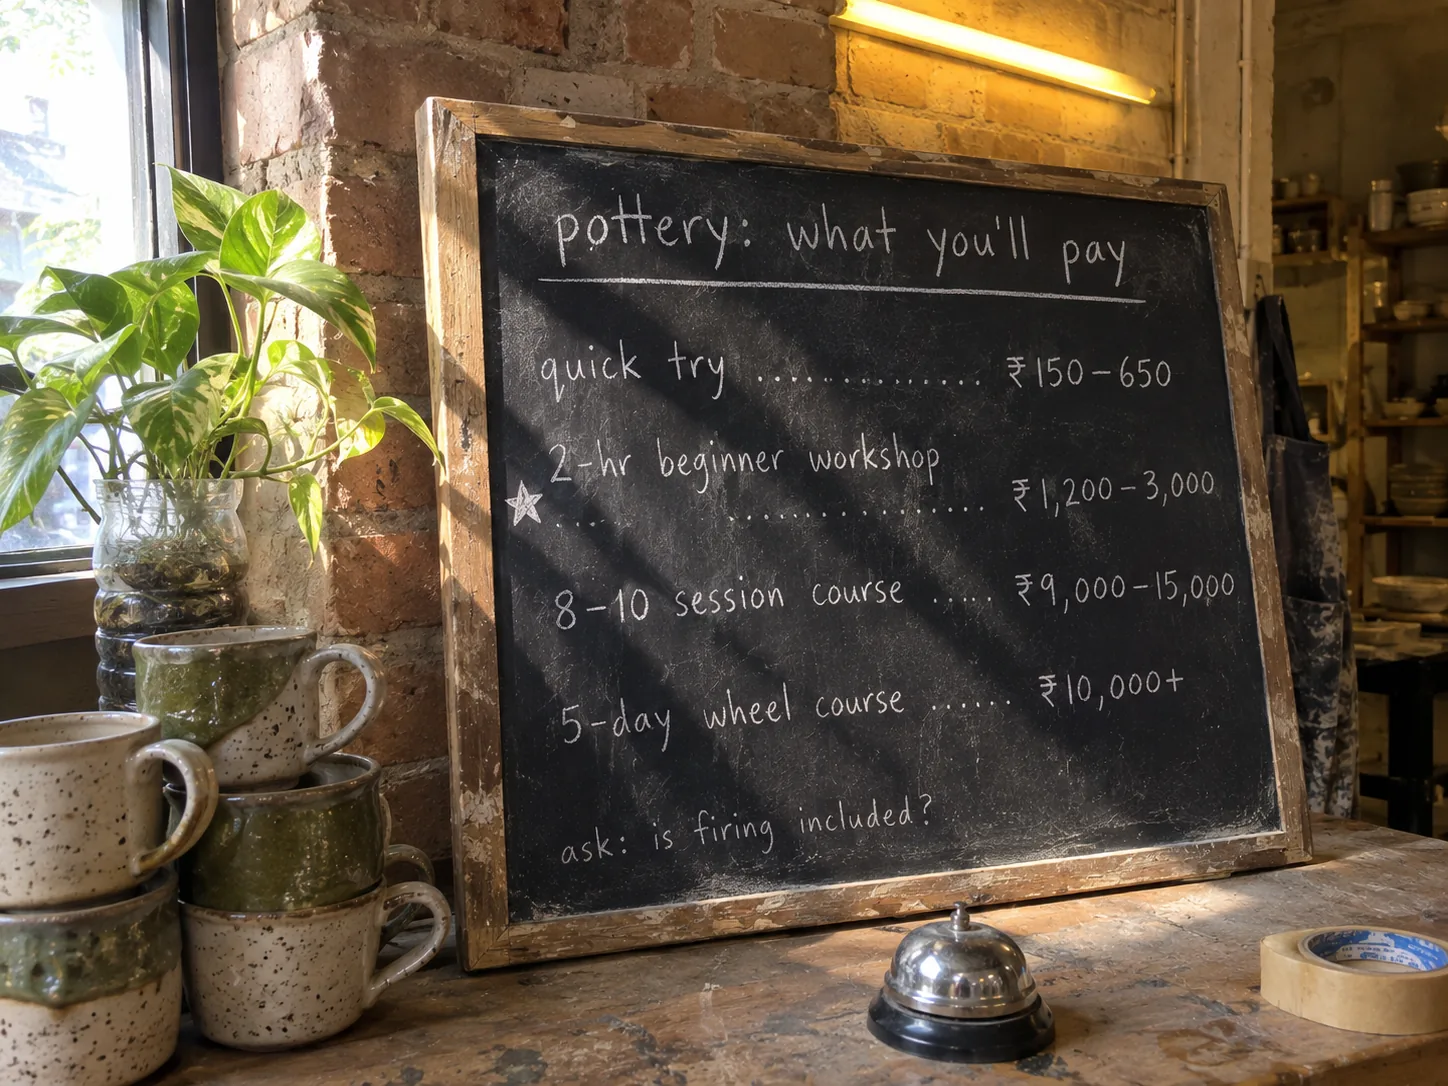 pottery: what you'll pay
quick try .............. ₹150–650
2-hr beginner workshop
..... ................. ₹1,200–3,000
8–10 session course ..... ₹9,000–15,000
5-day wheel course ...... ₹10,000+
ask: is firing included?